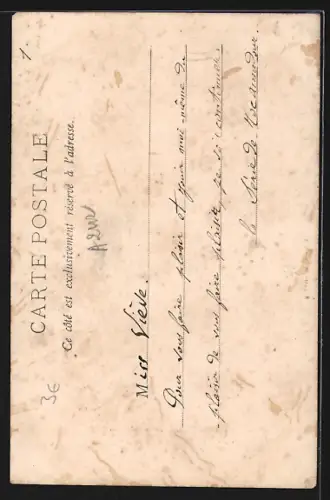 1.
CARTE POSTALE
Ce côté est exclusivement réservé à l'adresse.
A2W2
36
Miss Siède.
Pour vous faire plaisir et pour moi-même du
plaisir de vous faire plaisir, je
la Série de